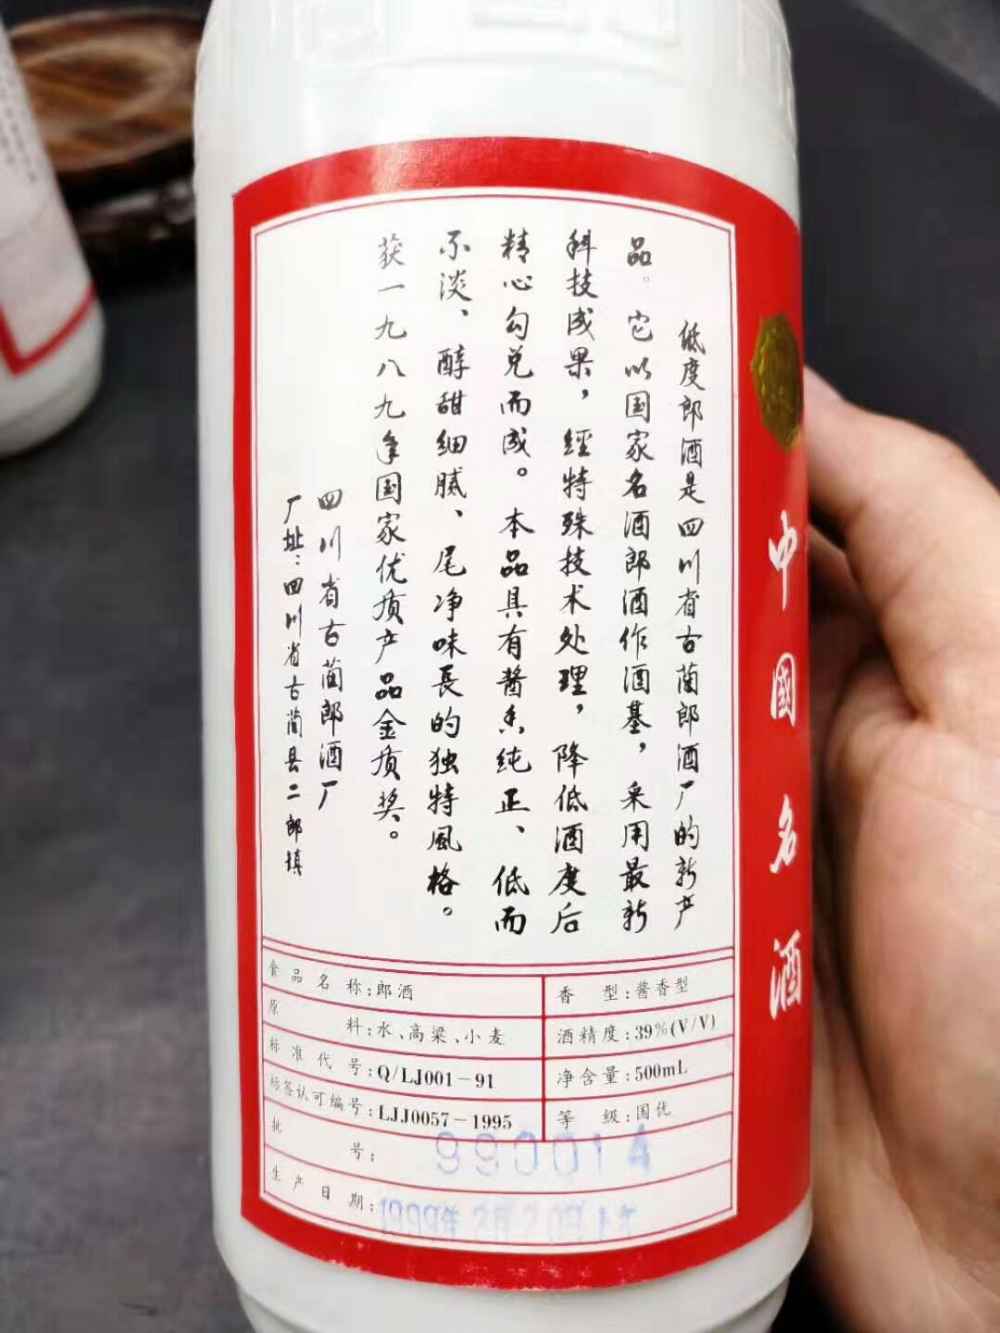 低度郎酒是四川省古蔺郎酒厂的新产
品。它以国家名酒郎酒作酒基，采用最新
科技成果，經特殊技术处理，降低酒度后
精心勾兑而成。本品具有酱香纯正、低而
不淡、醇甜细腻、尾净味長的独特風格。
获一九八九年国家优质产品金质奖。
四川省古蔺郎酒厂
厂址：四川省古蔺县二郎镇
中國名酒
食品名称：郎酒
香型：酱香型
原料：水、高粱、小麦
酒精度：39%(V/V)
标准代号：Q/LJ001－91
净含量：500mL
标签认可编号：LJJ0057－1995
等级：国优
批号：990014
生产日期：1999年2月20日